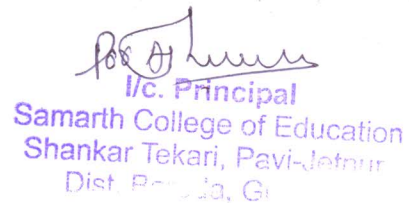 I/c. Principal
Samarth College of Education
Shankar Tekari, Pavi-Jetpur
Dist.